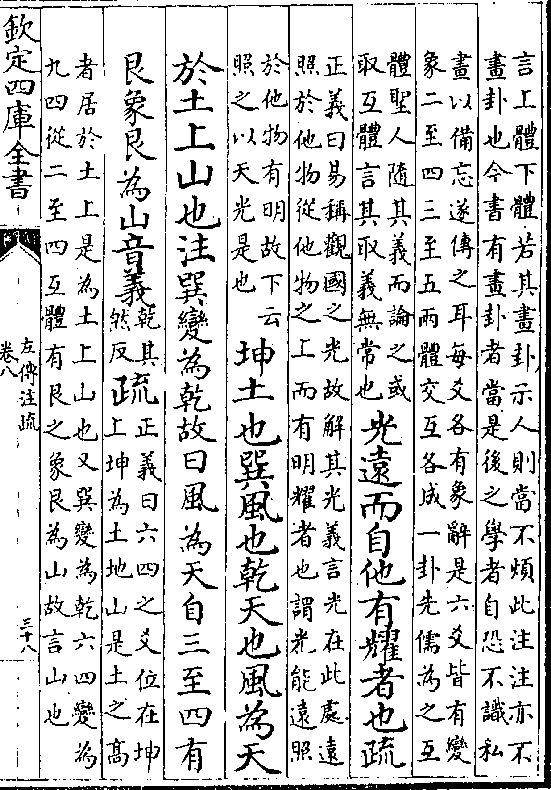 言上體下體若其畫卦示人則當不煩此注注亦不
畫卦也今書有畫卦者當是後之學者自恐不識私
畫以備忘遂傳之耳每爻各有象辭是六爻皆有變
象二至四三至五兩體交互各成一卦先儒為之互
體聖人隨其義而論之或
取互體言其取義無常也
光遠而自他有耀者也疏
正義曰易稱觀國之光故解其光義言光在此處遠
照於他物從他物之上而有明耀者也謂光能遠照
於他物有明故下云
照之以天光是也
坤土也巽風也乾天也風為天
於土上山也注巽變為乾故曰風為天自三至四有
艮象艮為山音義
乾其
然反
疏
正義曰六四之爻位在坤
上坤為土地山是土之高
者居於土上是為土上山也又巽變為乾六四變為
九四從二至四互體有艮之象艮為山故言山也
欽定四庫全書
左傳注疏
卷八
三十八